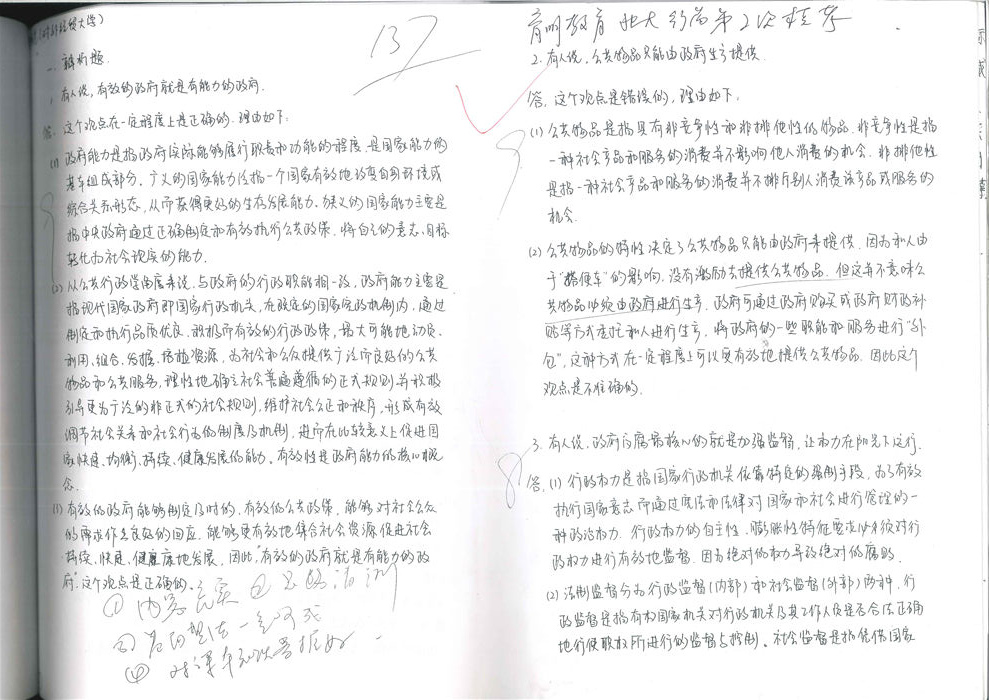 (对外经贸大学)
一、辨析题.
1. 有人说，有效的政府就是有能力的政府.
答. 这个观点在一定程度上是正确的. 理由如下:
(1) 政府能力是指政府实际能够履行职责和功能的程度. 是国家能力的
基本组成部分. 广义的国家能力泛指一个国家有效地改变自身环境或
综合关系形态, 从而获得更好的生存发展能力. 狭义的国家能力主要是
指中央政府通过正确制定和有效执行公共政策. 将自己的意志、目标
转化为社会现实的能力.
(2) 从公共行政学角度来说, 与政府的行政职能相一致, 政府能力主要是
指现代国家政府即国家行政机关, 在既定的国家宪政机制内, 通过
制定和执行品质优良、积极而有效的行政政策, 最大可能地动员、
利用、组合、发掘、培植资源, 为社会和公众提供广泛而良好的公共
物品和公共服务, 理性地确立社会普遍遵循的正式规则并积极
引导更为广泛的非正式的社会规则, 维护社会公正和秩序, 形成有效
调节社会关系和社会行为的制度及机制, 进而在比较意义上促进国
家快速、均衡、持续、健康发展的能力. 有效性是政府能力的核心概
念.
(1) 有效的政府能够制定及时的、有效的公共政策, 能够对社会公众
的需求作出良好的回应, 能够更有效地集合社会资源促进社会
持续、快速、健康地发展. 因此, "有效的政府就是有能力的政
府". 这个观点是正确的.
① 内容充实
④
137
育明教育 北大行管第2次模考
2. 有人说, 公共物品只能由政府生产提供.
答. 这个观点是错误的, 理由如下.
(1) 公共物品是指具有非竞争性和非排他性的物品. 非竞争性是指
一种社会产品和服务的消费并不影响他人消费的机会. 非排他性
是指一种社会产品和服务的消费并不排斥别人消费该产品或服务的
机会.
(2) 公共物品的特性决定了公共物品只能由政府来提供. 因为私人由
于"搭便车"的影响, 没有激励去提供公共物品. 但这并不意味公
共物品必须由政府进行生产. 政府可通过政府购买或政府财政补
贴等方式委托私人进行生产, 将政府的一些职能和服务进行"外
包", 这种方式在一定程度上可以更有效地提供公共物品. 因此这个
观点是不准确的.
3. 有人说, 政府反腐最核心的就是加强监督, 让权力在阳光下运行.
答. (1) 行政权力是指国家行政机关依靠特定的强制手段, 为了有效
执行国家意志而通过宪法和法律对国家和社会进行管理的一
种政治权力. 行政权力的自主性、膨胀性特征要求必须对行
政权力进行有效地监督. 因为绝对的权力导致绝对的腐败.
(2) 法制监督分为行政监督(内部)和社会监督(外部)两种, 行
政监督是指有权国家机关对行政机关及其工作人员是否合法正确
地行使职权所进行的监督与控制、社会监督是指凭借国家